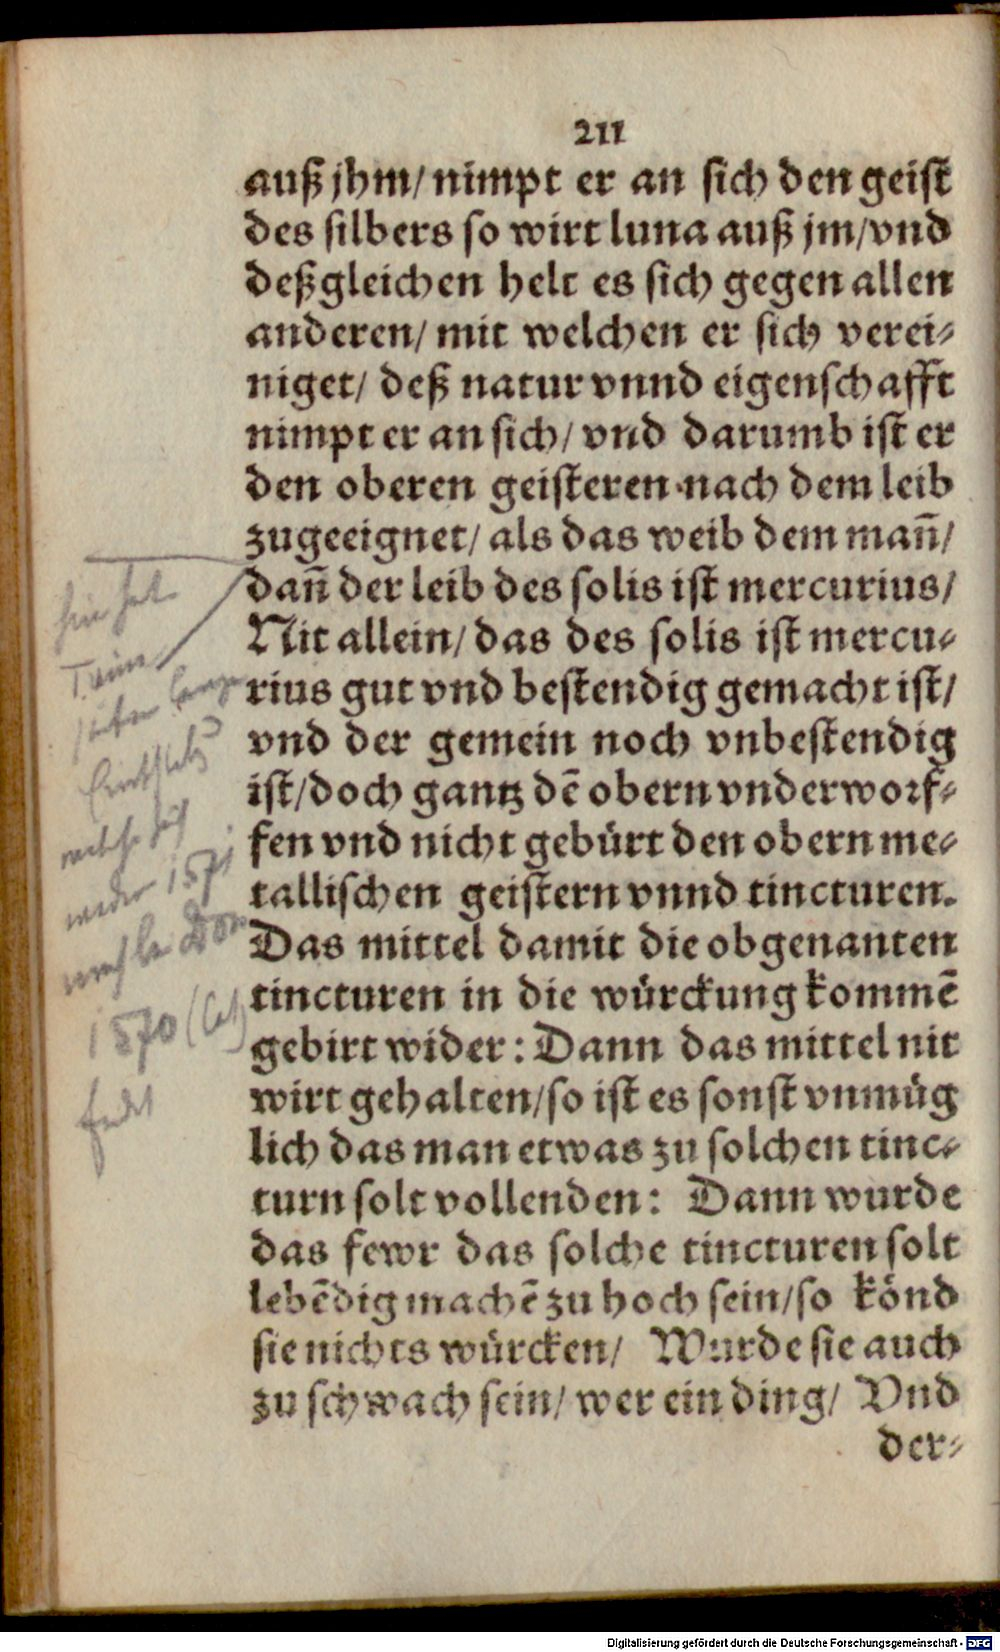 211
auß jhm/ nimpt er an sich den geist
des silbers so wirt luna auß jm/vnd
deßgleichen helt es sich gegen allen
anderen/ mit welchen er sich verei-
niget/ deß natur vnnd eigenschafft
nimpt er an sich/ vnd darumb ist er
den oberen geisteren nach dem leib
zugeeignet/ als das weib dem mañ/
dañ der leib des solis ist mercurius/
Nit allein/ das des solis ist mercu-
rius gut vnd bestendig gemacht ist/
vnd der gemein noch vnbestendig
ist/doch gantz dē obern vnderworf-
fen vnd nicht gebürt den obern me-
tallischen geistern vnnd tincturen.
Das mittel damit die obgenanten
tincturen in die würckung kommē
gebirt wider: Dann das mittel nit
wirt gehalten/so ist es sonst vnmüg
lich das man etwas zu solchen tinc-
turn solt vollenden: Dann wurde
das fewr das solche tincturen solt
lebēdig machē zu hoch sein/so könd
sie nichts würcken/ Wurde sie auch
zu schwach sein/ wer ein ding/ Vnd
der-
1571
1570
Digitalisierung gefördert durch die Deutsche Forschungsgemeinschaft - DFG